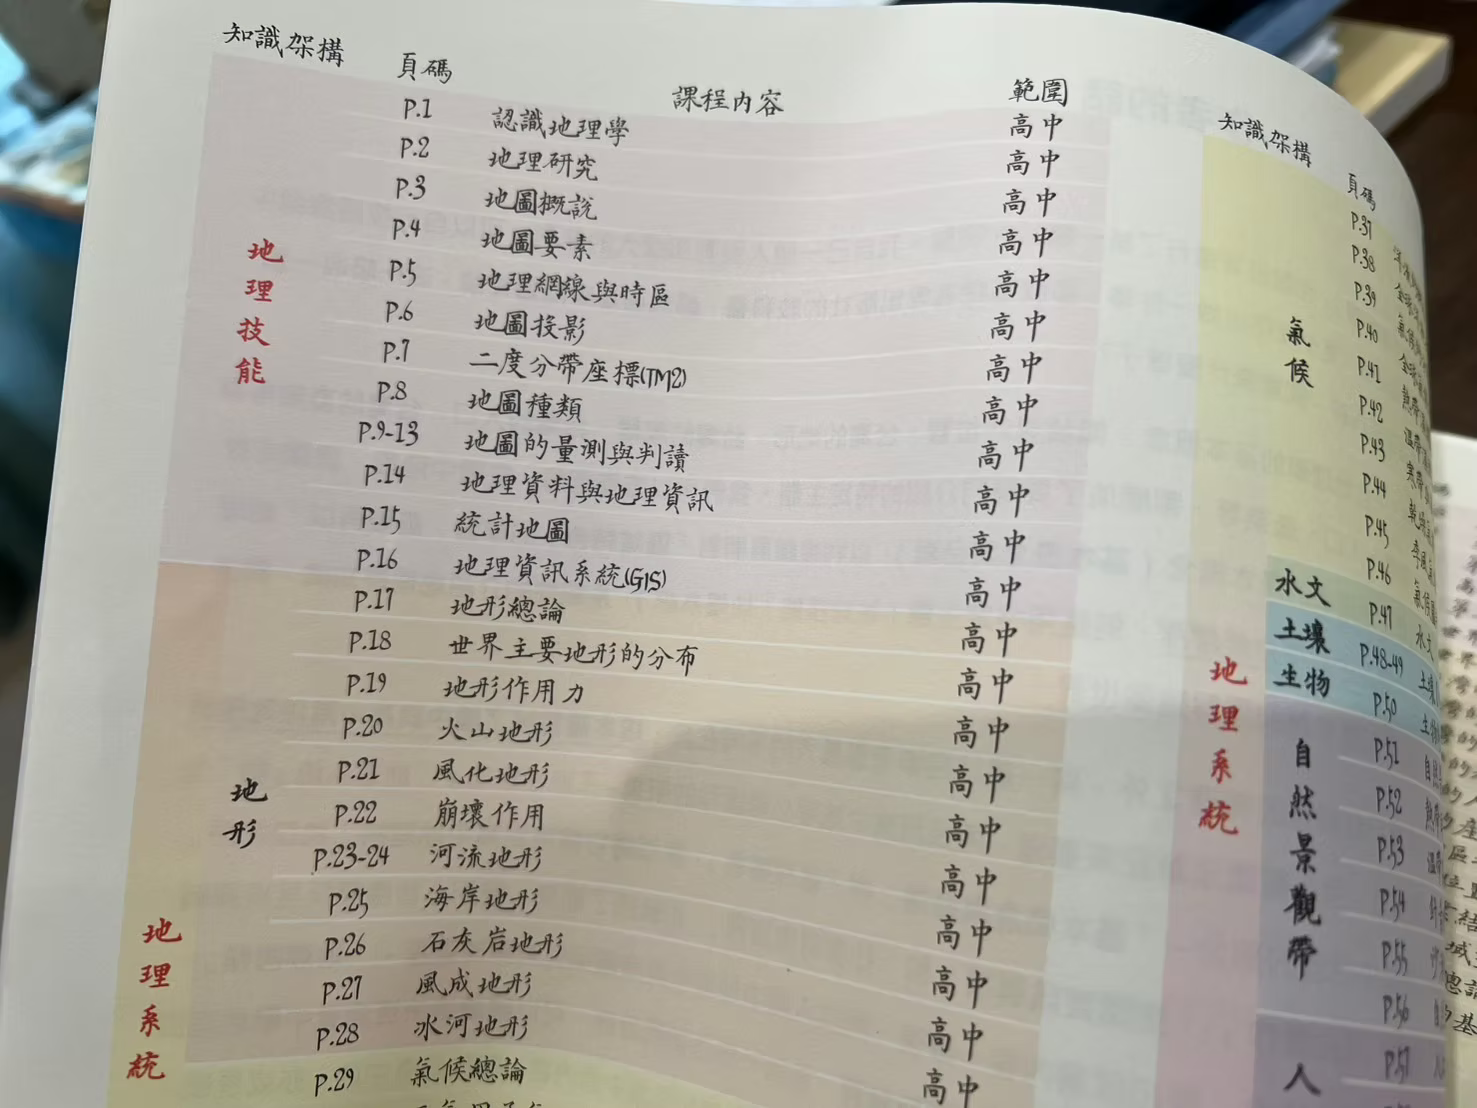 知識架構 頁碼 課程內容 範圍
地理技能
P.1 認識地理學 高中
P.2 地理研究 高中
P.3 地圖概說 高中
P.4 地圖要素 高中
P.5 地理網線與時區 高中
P.6 地圖投影 高中
P.7 二度分帶座標(TM2) 高中
P.8 地圖種類 高中
P.9-13 地圖的量測與判讀 高中
P.14 地理資料與地理資訊 高中
P.15 統計地圖 高中
P.16 地理資訊系統(GIS) 高中
地理系統
地形
P.17 地形總論 高中
P.18 世界主要地形的分布 高中
P.19 地形作用力 高中
P.20 火山地形 高中
P.21 風化地形 高中
P.22 崩壞作用 高中
P.23-24 河流地形 高中
P.25 海岸地形 高中
P.26 石灰岩地形 高中
P.27 風成地形 高中
P.28 冰河地形 高中
P.29 氣候總論 高中
知識架構 頁碼
地理系統
氣候
P.37
P.38
P.39
P.40
P.41
P.42
P.43
P.44
P.45
P.46
水文 P.47 水文
土壤 P.48-49
生物 P.50
自然景觀帶
P.51
P.52
P.53
P.54
P.55
P.56
人
P.57